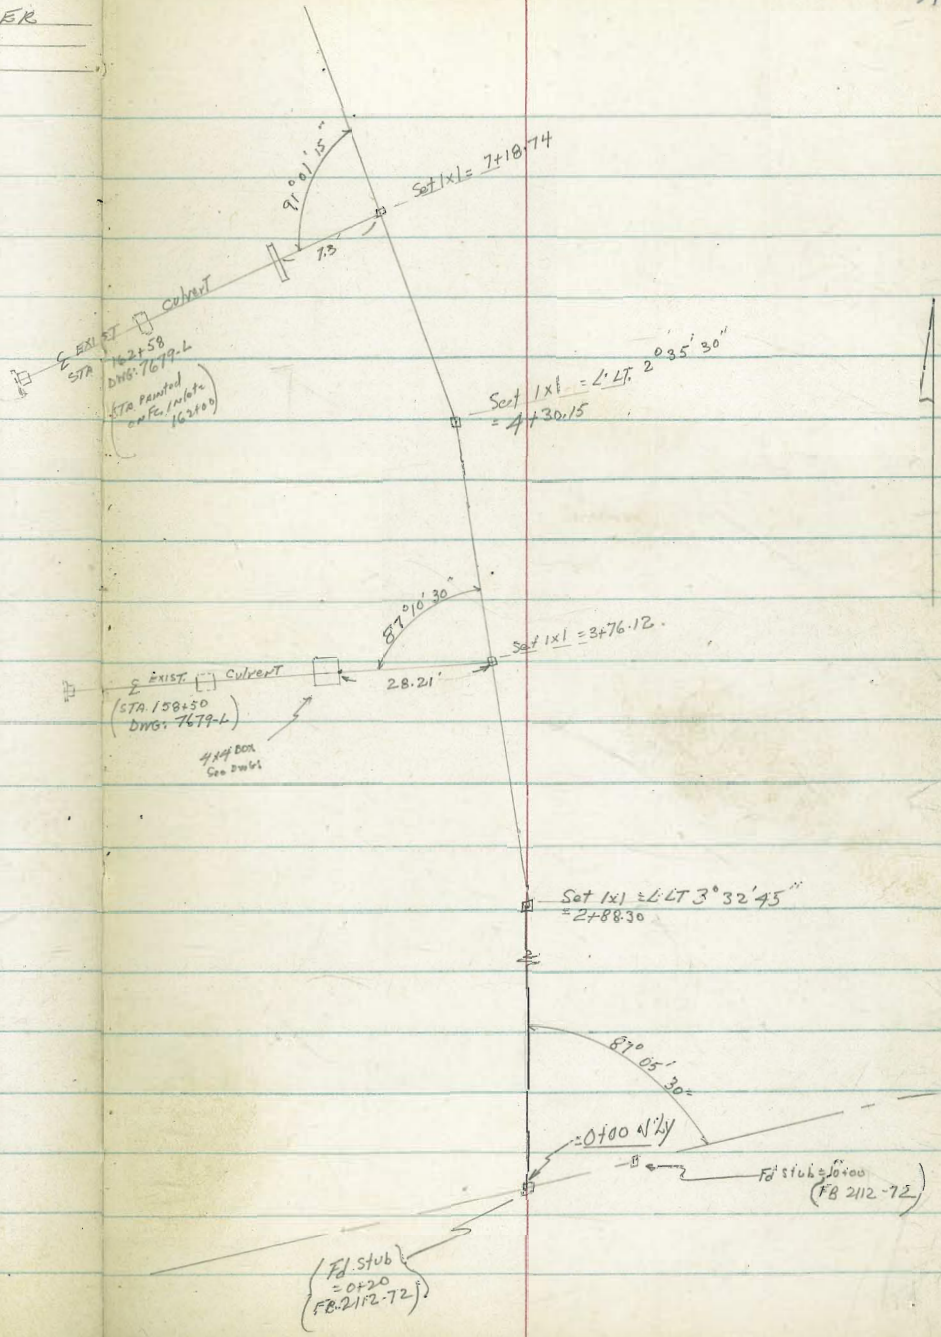 ER
91°01'15"
Set 1x1 = 7+18.74
7.3
Culvert
℄ EXIST
STA 162+58
DWG: 7679-L
(STA Painted
on Fc. Inlet
162+00)
Set 1x1 = ∠ LT. 2°35'30"
= 4+30.15
87°10'30"
Set 1x1 = 3+76.12.
℄ EXIST. Culvert
28.21'
(STA. 158+50
DWG: 7679-L)
4x4 BOX
See DWG:
Set 1x1 = ∠ LT 3°32'45"
= 2+88.30
87°05'30"
= 0+00 N'ly
Fd stub = 10+00
(FB 2112-72)
(Fd. Stub
= 0+20
FB. 2112-72)